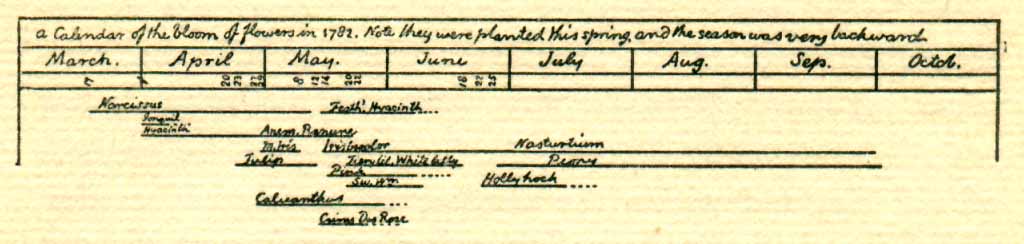 a Calendar of the bloom of flowers in 1782. Note they were planted this spring, and the season was very backward.
March. April May. June July Aug. Sep. Octob.
17 1 20 23 27 29 8 12 14 20 22 18 22 25
Narcissus Feath'. Hyacinth
Jonquil
Hyacinth Anem. Ranunc
M. Iris Iris bicolor Nasturtium
Tulip Fiery lil. White lilly Piony
Pink Hollyhock
Sw. Wm
Calycanthus
Crims Dw Rose